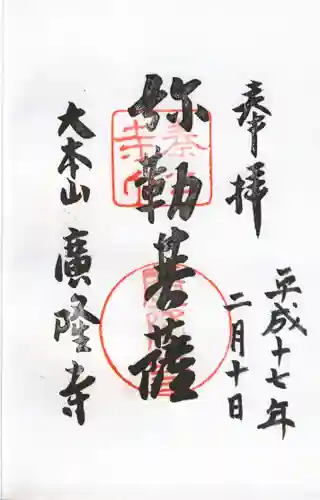 奉拝
平成十七年
二月十日
弥勒菩薩
大本山 廣隆寺